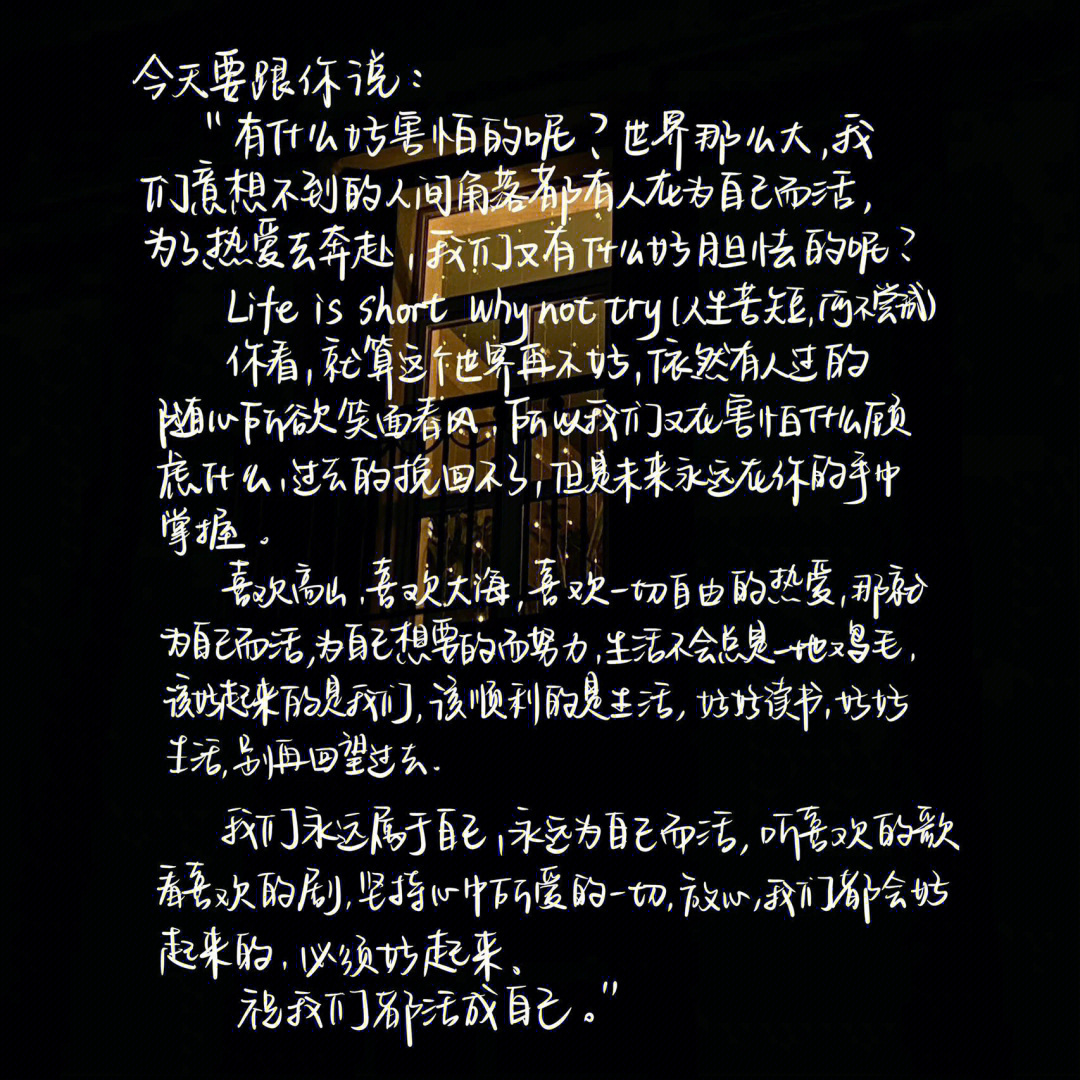 今天要跟你说：
"有什么好害怕的呢？世界那么大，我
们意想不到的人间角落都有人在为自己而活，
为了热爱去奔赴，我们又有什么好胆怯的呢？
Life is short why not try（人生苦短，何不尝试）
你看，就算这个世界再不好，依然有人过的
随心所欲笑面春风，所以我们又在害怕什么顾
虑什么，过去的挽回不了，但是未来永远在你的手中
掌握。
喜欢高山，喜欢大海，喜欢一切自由的热爱，那就
为自己而活，为自己想要的而努力，生活不会总是一地鸡毛，
该好起来的是我们，该顺利的是生活，好好读书，好好
生活，别再回望过去.
我们永远属于自己，永远为自己而活，听喜欢的歌
看喜欢的剧，坚持心中所爱的一切，放心，我们都会好
起来的，必须好起来、
祝我们都活成自己。"